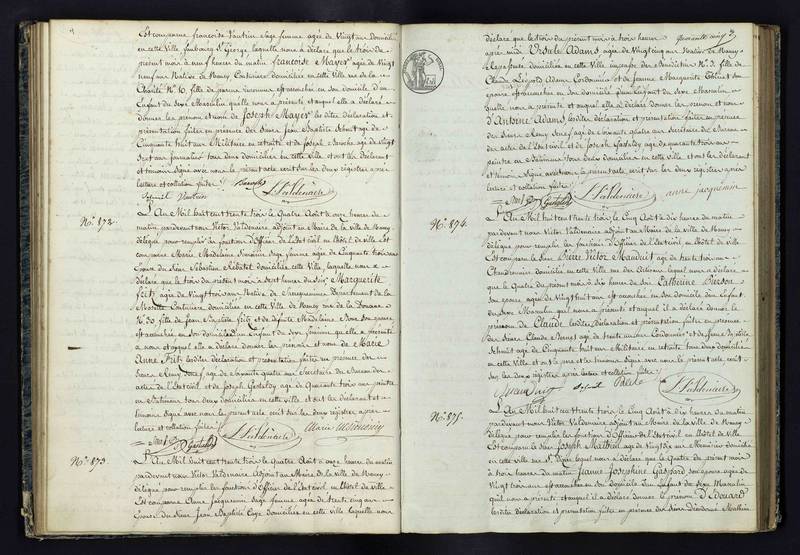 Est comparue françoise Vautrin Sage femme agée de Vingt ans Domiciliée
en cette Ville faubourg St George laquelle nous a déclaré que le trois du
présent mois à neuf heures du matin françoise Mayer agée de Vingt
neuf ans Native de Nancy Couturière domiciliée en cette Ville rue de la
Charité No 10, fille de parens inconnus est accouchée en son domicile d'un
Enfant du Sexe Masculin qu'elle nous a présenté et auquel elle a déclaré
donner les prénom et nom de Joseph Mayer les dites Déclaration et
présentation faites en présence des Sieurs Jean Baptiste Schmit agé de
Cinquante huit ans Militaire en retraite et de Joseph agé de Vingt
sept ans journalier tous deux domiciliés en cette Ville et ont les déclarant
et témoins Signé avec nous le présent acte écrit sur les deux registres après
lecture et collation faites
Schmit Vautrin
No 872.
L'An Mil huit cent trente trois le Quatre Août à heures du
matin pardevant nous Victor Valdenaire adjoint au Maire de la ville de Nancy
délégué pour remplir les fonctions d'Officier de l'Etat civil en l'hôtel de ville est
comparue Marie Madelaine Simonin Sage femme agée de Cinquante trois ans
Epouse du Sieur Sébastien domiciliée en cette Ville, laquelle nous a
déclaré que le trois du présent mois à sept heures du Soir Marguerite
Fritz agée de Vingt trois ans Native de Sarreguemines Département de la
Moselle Couturière, domiciliée en cette Ville de Nancy rue de la Douane
No 30 fille de Jean Baptiste fritz et de défunte Madelaine Son épouse
est accouchée en son domicile d'un Enfant du Sexe féminin qu'elle a présenté
à nous et auquel elle a déclaré donner les prénoms et nom de Marie
Anne Fritz les dites déclaration et présentation faites en présence des
Sieurs Remy agé de Soixante quatre ans Secrétaire du Bureau des
actes de l'Etat civil et de Joseph Gastaldy agé de Quarante trois ans peintre
en bâtimens tous deux domiciliés en cette ville et ont les déclarant et
témoins signé avec nous le présent acte écrit sur les deux registres après
lecture et collation faites
Gastaldy L. Valdenaire Marie
No 873
L'An Mil huit cent trente trois le Quatre Août à onze heures du matin
pardevant nous Victor Valdenaire Adjoint au Maire de la Ville de Nancy
délégué pour remplir les fonctions d'Officier de l'Etat civil en l'hôtel de ville est
comparue Anne Jacquemin Sage femme agée de trente cinq ans
Epouse du Sieur Jean Baptiste domiciliée en cette ville laquelle nous
quarante cinq
déclaré que le trois du présent mois à trois heures
après midi Ursule Adams agée de Vingt cinq ans Native de Nancy
Repasseuse domiciliée en cette Ville impasse des Bénédictins No 3 fille de
Claude Léopold Adam Cordonnier et de femme Marguerite son
épouse est accouchée en son domicile d'un Enfant du Sexe Masculin
qu'elle nous a présenté et auquel elle a déclaré donner les prénom et nom
d'Antoine Adams les dites déclaration et présentation faites en présence
des Sieurs Remy agé de soixante quatre ans Secrétaire du Bureau
des actes de l'Etat civil et de Joseph Gastaldy agé de quarante trois ans
peintre en bâtimens tous deux domiciliés en cette ville et ont les déclarant
et témoins Signé avec nous le présent acte écrit sur les deux registres après
lecture et collation faites
Gastaldy L. Valdenaire anne jacquemin
No 874.
L'An Mil huit cent trente trois le Cinq Août à dix heures du matin
pardevant nous Victor Valdenaire adjoint au Maire de la Ville de Nancy
délégué pour remplir les fonctions d'Officier de l'Etat civil en l'hôtel de ville
Est comparu le Sieur Pierre Victor Mauduit agé de trente trois ans
Chaudronnier domicilié en cette Ville rue des Artisans lequel nous a déclaré
que le Quatre du présent mois à dix heures du soir Catherine Bierson
son épouse agée de Vingt huit ans est accouchée en son domicile d'un Enfant
du Sexe Masculin qu'il nous a présenté et auquel il a déclaré donner le
prénom de Claude les dites déclaration et présentation faites en présence
des Sieurs Claude agé de trente ans Cordonnier et de Jean Baptiste
Schmit agé de Cinquante huit ans Militaire en retraite tous deux domiciliés
en cette ville et ont le père et les témoins Signé avec nous le présent acte écrit
sur les deux registres après lecture et collation faites
Mauduit Schmit L. Valdenaire
No 875.
L'An Mil huit cent trente trois le Cinq Août à dix heures du matin
pardevant nous Victor Valdenaire Adjoint au Maire de la Ville de Nancy
délégué pour remplir les fonctions d'Officier de l'Etat civil en l'hôtel de Ville
Est comparu le Sieur Joseph Mathieu agé de Vingt six ans Menuisier domicilié
en cette ville rue St lequel nous a déclaré que le Quatre du présent mois
à trois heures du matin Jeanne Josephine Gaspard son épouse agée de
Vingt trois ans est accouchée en son domicile d'un Enfant du Sexe Masculin
qu'il nous a présenté et auquel il a déclaré donner le prénom d'Edouard
les dites déclaration et présentation faites en présence des Sieurs Dieudonné Mathieu